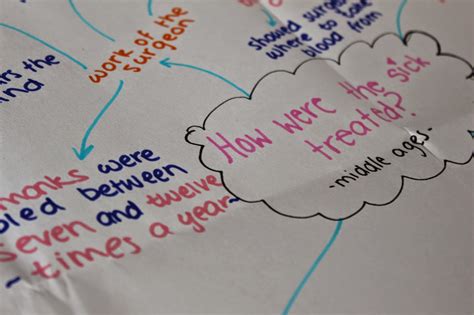 showed
where to take
blood from
work of the
surgeon
the
How were the sick
treated?
-middle ages-
monks were
bled between
seven and twelve
~ times a year~